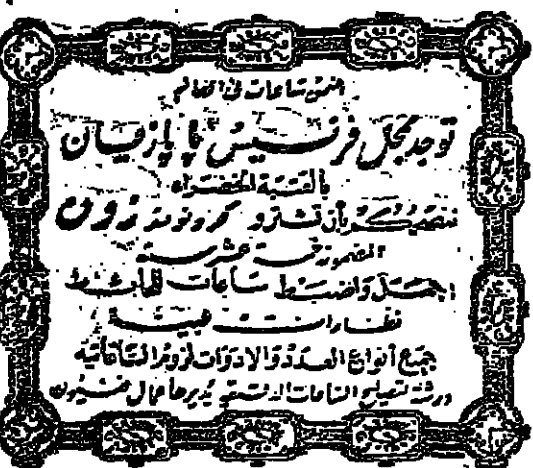 اضمن ساعات في العالم
توجد بمحل فرنسيس پاپازيان
بالعتبة الخضراء
ننصحكم بأن تشتروا كرونومتر زون
المضمونة خمسة عشر سنة
اجمل واضبط ساعات للحائط
نظارات طبية
جميع أنواع العدد والادوات لزوم الساعاتيه
ورشة لتصليح الساعات الدقيقة يديرها عمال